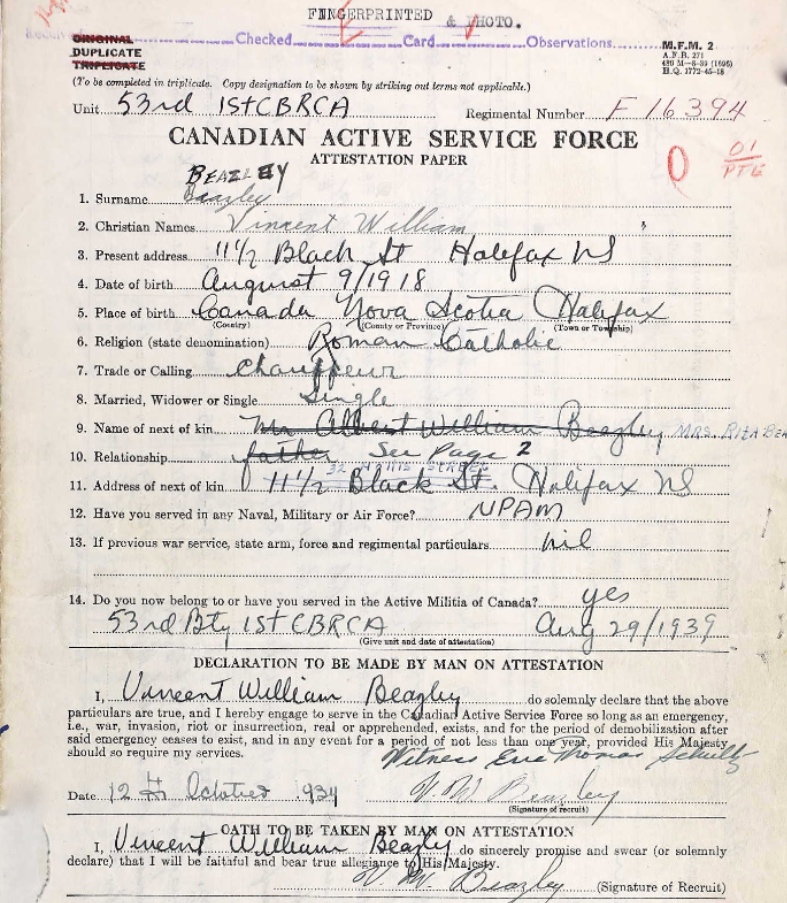 FINGERPRINTED & PHOTO.
Checked Card Observations
ORIGINAL
DUPLICATE
TRIPLICATE
M.F.M. 2
A.F.B. 271
H.Q. 1772-45-18
(To be completed in triplicate. Copy designation to be shown by striking out terms not applicable.)
Unit 53rd 1st CBRCA Regimental Number F 16394
CANADIAN ACTIVE SERVICE FORCE
ATTESTATION PAPER
BEAZLEY
1. Surname Beazley
2. Christian Names Vincent William
3. Present address 11½ Black St Halifax NS
4. Date of birth August 9/1918
5. Place of birth Canada Nova Scotia Halifax
(Country) (County or Province) (Town or Township)
6. Religion (state denomination) Roman Catholic
7. Trade or Calling Chauffeur
8. Married, Widower or Single Single
9. Name of next of kin Mr Albert William Beazley MRS. RITA BEA
10. Relationship father See Page 2
32 STREET
11. Address of next of kin 11½ Black St. Halifax NS
12. Have you served in any Naval, Military or Air Force? NPAM
13. If previous war service, state arm, force and regimental particulars nil
14. Do you now belong to or have you served in the Active Militia of Canada? yes
53rd Bty 1st CBRCA Aug 29/1939
(Give unit and date of attestation)
DECLARATION TO BE MADE BY MAN ON ATTESTATION
I, Vincent William Beazley do solemnly declare that the above
particulars are true, and I hereby engage to serve in the Canadian Active Service Force so long as an emergency,
i.e., war, invasion, riot or insurrection, real or apprehended, exists, and for the period of demobilization after
said emergency ceases to exist, and in any event for a period of not less than one year, provided His Majesty
should so require my services.
Witness Thomas Schultz
Date 12 October 1939 V. W Beazley
(Signature of recruit)
OATH TO BE TAKEN BY MAN ON ATTESTATION
I, Vincent William Beazley do sincerely promise and swear (or solemnly
declare) that I will be faithful and bear true allegiance to His Majesty.
V. W. Beazley (Signature of Recruit)